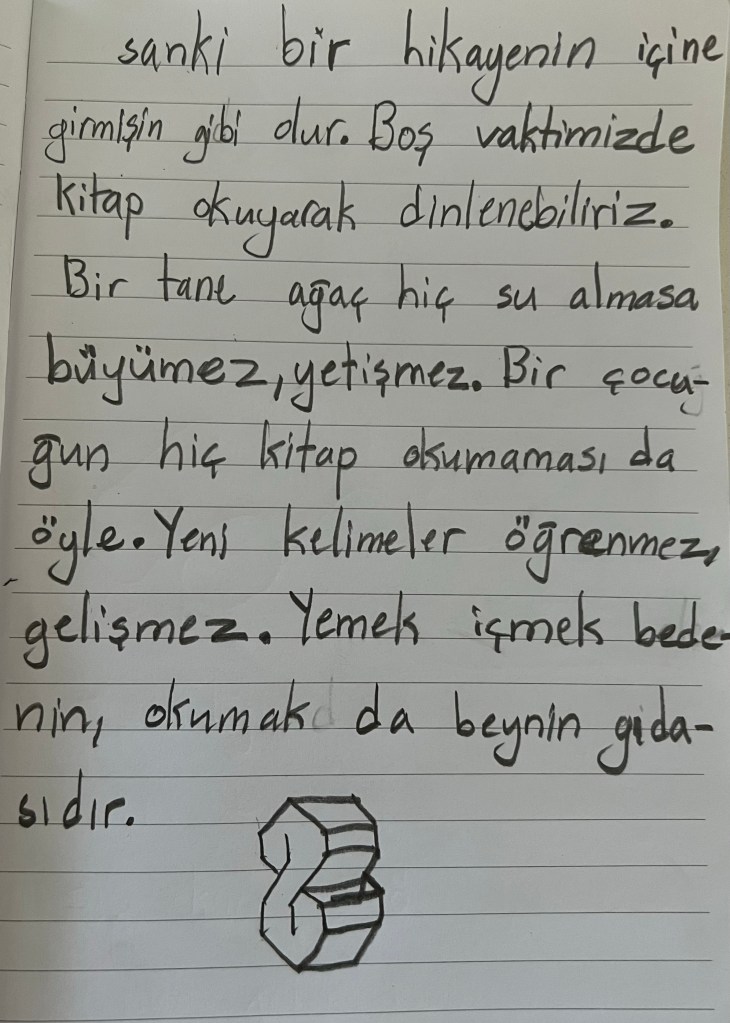 sanki bir hikayenin içine
girmişin gibi olur. Boş vaktimizde
kitap okuyarak dinlenebiliriz.
Bir tane ağaç hiç su almasa
büyümez, yetişmez. Bir çocu-
ğun hiç kitap okumaması da
öyle. Yeni kelimeler öğrenmez,
gelişmez. Yemek içmek bede-
nin, okumak da beynin gıda-
sıdır.